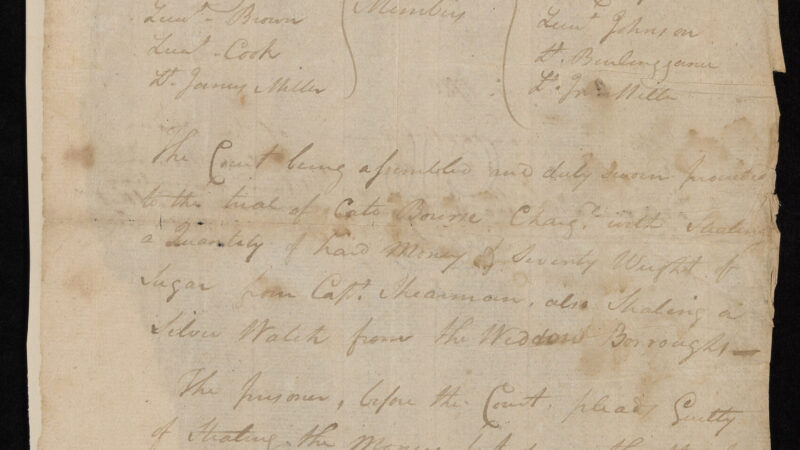 Lieut. Brown
Lieut. Cook
Lt. James Miller
Members
Lieut. Johnson
Lt. Burlinggame
Lt. Jno. Miller
The Court being assembled and duly sworn proceeded
to the trial of Cato Bourse Charg.d with Stealing
a Quantity of hard Money & Seventy Weight of
Sugar from Capt. Shearman, also Stealing a
Silver Watch from the Widdow Borroughs—
The prisoner, before the Court, pleads Guilty
of Stealing the Money